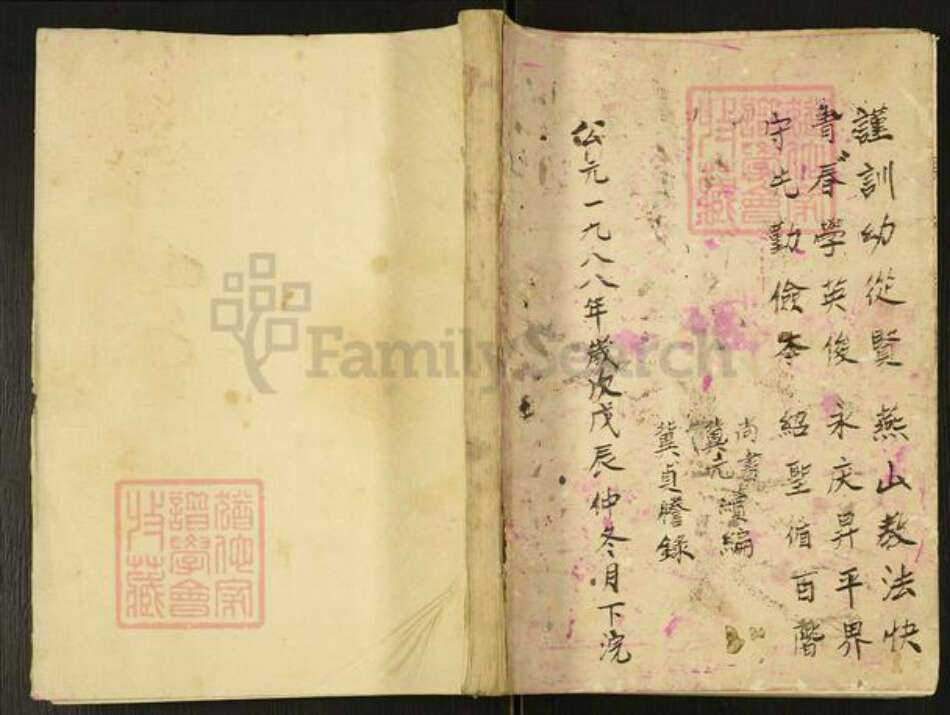 謹訓幼從賢 燕山教法快
書 學英俊 永庆昇平界
守先勤儉本 紹聖循百階
尚書
冀元 續編
冀貞謄錄
公元一九八八年歲次戊辰仲冬月下浣
FamilySearch
譜學會
收藏